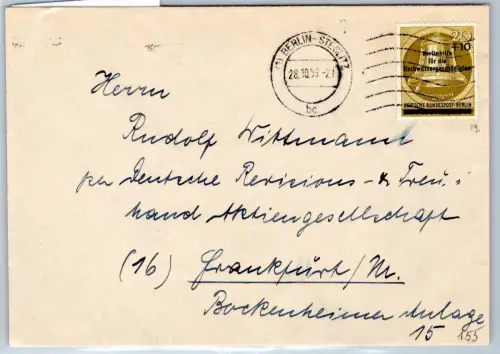 (1) BERLIN-STEGLITZ
28.10.56.-21
bc
20
+10
Berlinhilfe
für die
Hochwassergeschädigten
DEUTSCHE BUNDESPOST BERLIN
Herrn
Rudolf Wittmann
per Deutsche Revisions- & Treu-
hand Aktiengesellschaft
(16) Frankfurt/M.
Bockenheimer Anlage
15
155